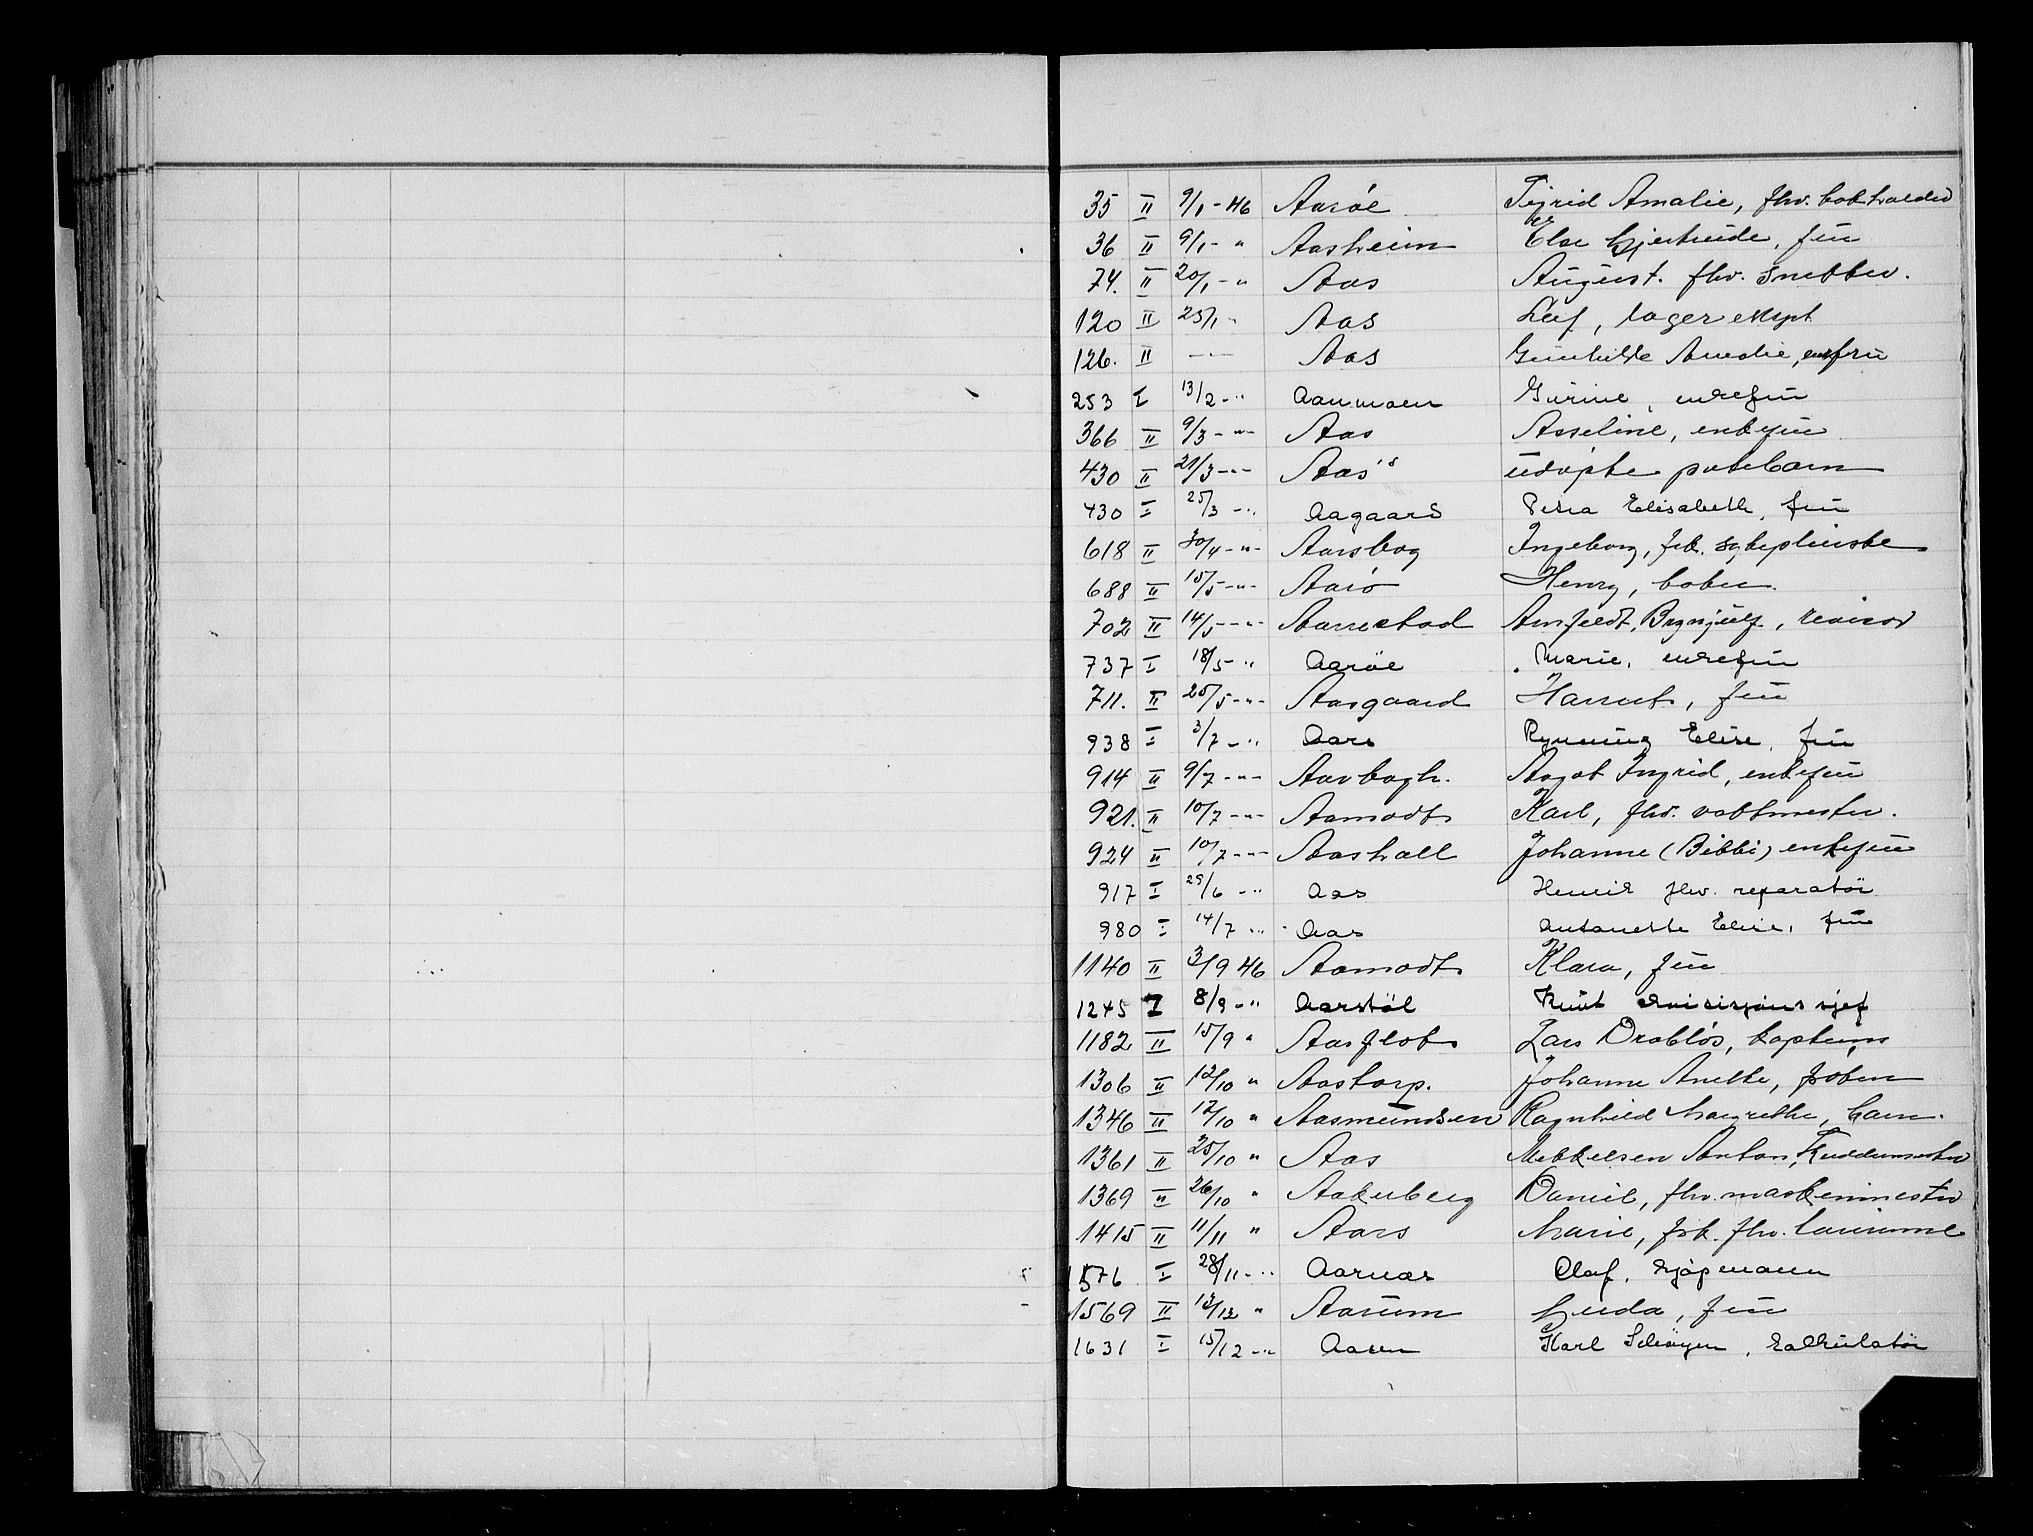 35 II 9/1 - 46 Aarøe Sigrid Amalie, fhv. bokholder
36 II 9/1 - " Aasheim Else Gjertrude, fru
74. II 20/1 - " Aas August. fhv. snekker.
120 II 25/1 " Aas Leif, lagerekspt
126. II -"- Aas Gunhilde Amalie, enkefru
253 I 13/2 - " Aanmoen Gurine, enkefru
366 II 9/3 - " - Aas Asseline, enkefru
430 II 21/3 - " - Aas's udøpte pikebarn
430 I 25/3 - " Aagaard Petra Elisabeth, fru
618 II 30/4 - " - Aarsbog Ingeborg, frk. sykepleierske
688 II 15/5 - " - Aarø Henry, baker
702 II 14/5 - " - Aarrestad Arnfeldt, Brynjulf, revisor
737 I 18/5 - " Aarøe Marie, enkefru
711. II 25/5 - " - Aasgaard Harriet, fru
938 I 3/7 - " Aars Rynning Elise, fru
914 II 9/7 - " - Aavbagh. Aagot Ingrid, enkefru
921. II 10/7 - " - Aamodt Karl, fhv. vaktmester.
924 II 10/7 - " - Aashall Johanne (Bibbi) enkefru
917 I 25/6 - " Aas Henrik fhv. reparatør
980 I 14/7 - " Aas Antonette Elise, fru
1140 II 3/9 46 Aamodt Klara, fru
1245 I 8/9 - " Aarstøl Knut divisjonssjef
1182 II 15/9 " Aasflot Lars Drabløs, kaptein
1306 II 12/10 " Aastorp. Johanne Anette, frøken
1346 II 17/10 " Aasmundsen Ragnhild Margrethe, barn.
1361 II 25/10 " Aas Mekkelsen Anton,
1369 II 26/10 " Aakerberg Daniel, fhv. maskinmester
1415 II 11/11 " Aars Marie, frk. fhv.
1576 I 28/11 - " Aarnæs Olaf, kjøpmann
1569 II 13/12 " Aarum Gerda, fru
1631 I 15/12 - " Aasen Karl, kalkulatør